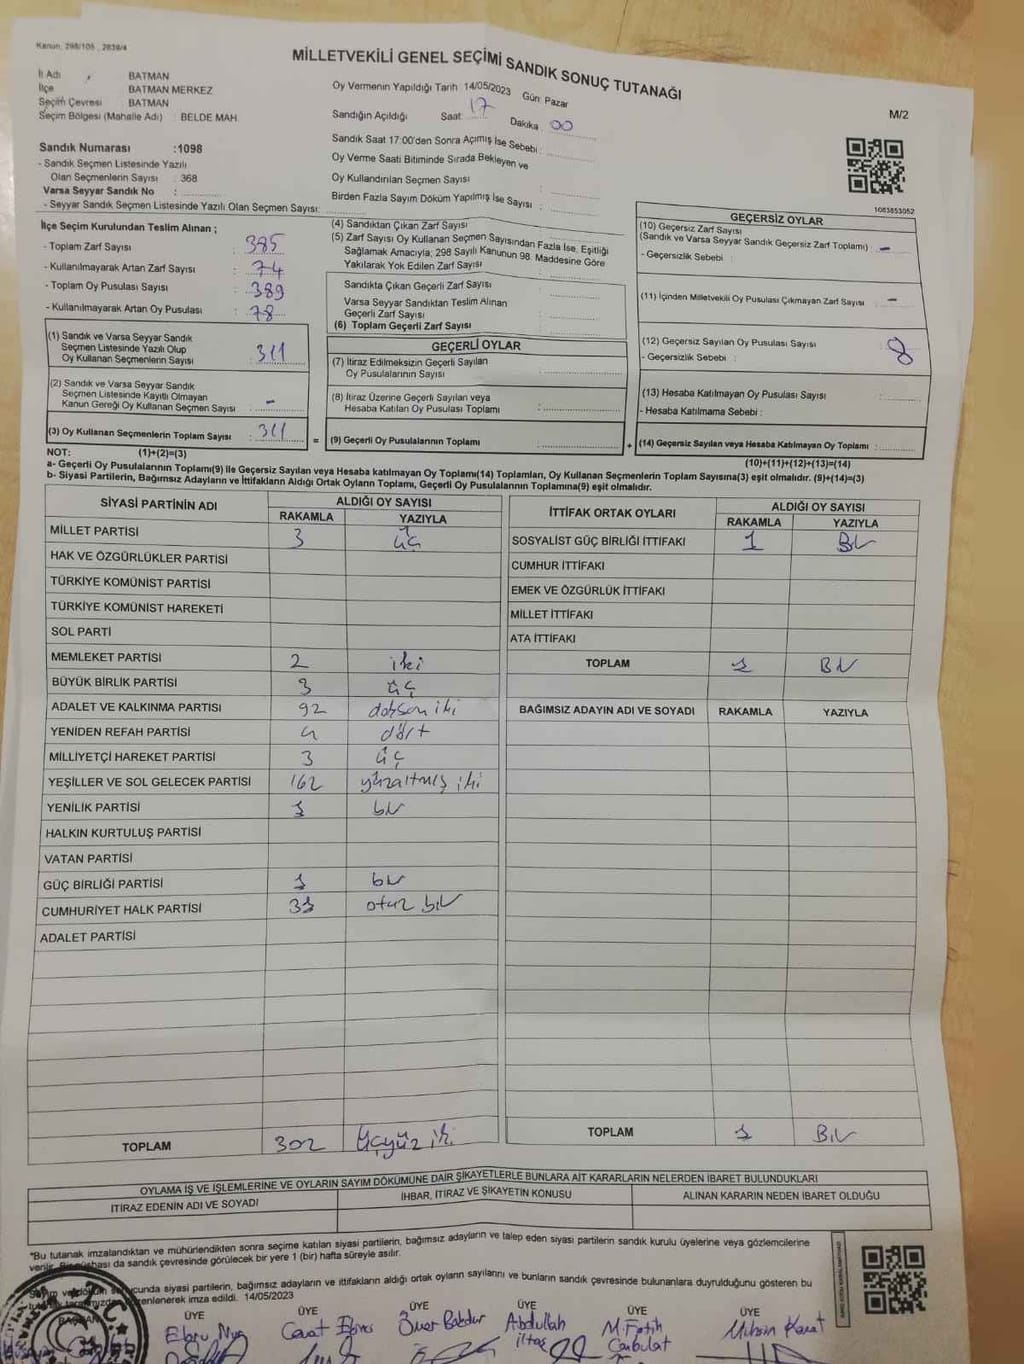 Kanun, 298/105 , 2839/4
MİLLETVEKİLİ GENEL SEÇİMİ SANDIK SONUÇ TUTANAĞI
M/2
İl Adı BATMAN
İlçe BATMAN MERKEZ
Seçim Çevresi BATMAN
Seçim Bölgesi (Mahalle Adı) : BELDE MAH.
Oy Vermenin Yapıldığı Tarih 14/05/2023 Gün: Pazar
Sandığın Açıldığı Saat: 17 Dakika 00
Sandık Saat 17:00'den Sonra Açımış İse Sebebi :
Oy Verme Saati Bitiminde Sırada Bekleyen ve
Oy Kullandırılan Seçmen Sayısı :
Birden Fazla Sayım Döküm Yapılmış İse Sayısı :
Sandık Numarası :1098
- Sandık Seçmen Listesinde Yazılı
Olan Seçmenlerin Sayısı : 368
Varsa Seyyar Sandık No :
- Seyyar Sandık Seçmen Listesinde Yazılı Olan Seçmen Sayısı:
1083853052
İlçe Seçim Kurulundan Teslim Alınan ;
- Toplam Zarf Sayısı : 385
- Kullanılmayarak Artan Zarf Sayısı : 74
- Toplam Oy Pusulası Sayısı : 389
- Kullanılmayarak Artan Oy Pusulası : 78
(1) Sandık ve Varsa Seyyar Sandık
Seçmen Listesinde Yazılı Olup
Oy Kullanan Seçmenlerin Sayısı : 311
(2) Sandık ve Varsa Seyyar Sandık
Seçmen Listesinde Kayıtlı Olmayan
Kanun Gereği Oy Kullanan Seçmen Sayısı : -
(3) Oy Kullanan Seçmenlerin Toplam Sayısı : 311
(4) Sandıktan Çıkan Zarf Sayısı :
(5) Zarf Sayısı Oy Kullanan Seçmen Sayısından Fazla İse, Eşitliği
Sağlamak Amacıyla; 298 Sayılı Kanunun 98. Maddesine Göre
Yakılarak Yok Edilen Zarf Sayısı :
Sandıkta Çıkan Geçerli Zarf Sayısı :
Varsa Seyyar Sandıktan Teslim Alınan
Geçerli Zarf Sayısı :
(6) Toplam Geçerli Zarf Sayısı :
GEÇERLİ OYLAR
(7) İtiraz Edilmeksizin Geçerli Sayılan
Oy Pusulalarının Sayısı :
(8) İtiraz Üzerine Geçerli Sayılan veya
Hesaba Katılan Oy Pusulası Toplamı :
= (9) Geçerli Oy Pusulalarının Toplamı :
GEÇERSİZ OYLAR
(10) Geçersiz Zarf Sayısı
(Sandık ve Varsa Seyyar Sandık Geçersiz Zarf Toplamı) : -
- Geçersizlik Sebebi :
(11) İçinden Milletvekili Oy Pusulası Çıkmayan Zarf Sayısı : -
(12) Geçersiz Sayılan Oy Pusulası Sayısı : 8
- Geçersizlik Sebebi :
(13) Hesaba Katılmayan Oy Pusulası Sayısı :
- Hesaba Katılmama Sebebi :
+ (14) Geçersiz Sayılan veya Hesaba Katılmayan Oy Toplamı :
NOT: (1)+(2)=(3)
(10)+(11)+(12)+(13)=(14)
a- Geçerli Oy Pusulalarının Toplamı(9) ile Geçersiz Sayılan veya Hesaba katılmayan Oy Toplamı(14) Toplamları, Oy Kullanan Seçmenlerin Toplam Sayısına(3) eşit olmalıdır. (9)+(14)=(3)
b- Siyasi Partilerin, Bağımsız Adayların ve İttifakların Aldığı Ortak Oyların Toplamı, Geçerli Oy Pusulalarının Toplamına(9) eşit olmalıdır.
SİYASİ PARTİNİN ADI ALDIĞI OY SAYISI
RAKAMLA YAZIYLA
MİLLET PARTİSİ 3 üç
HAK VE ÖZGÜRLÜKLER PARTİSİ
TÜRKİYE KOMÜNİST PARTİSİ
TÜRKİYE KOMÜNİST HAREKETİ
SOL PARTİ
MEMLEKET PARTİSİ 2 iki
BÜYÜK BİRLİK PARTİSİ 3 üç
ADALET VE KALKINMA PARTİSİ 92 doksan iki
YENİDEN REFAH PARTİSİ 4 dört
MİLLİYETÇİ HAREKET PARTİSİ 3 üç
YEŞİLLER VE SOL GELECEK PARTİSİ 162 yüzaltmış iki
YENİLİK PARTİSİ 1 bir
HALKIN KURTULUŞ PARTİSİ
VATAN PARTİSİ
GÜÇ BİRLİĞİ PARTİSİ 1 bir
CUMHURİYET HALK PARTİSİ 31 otuz bir
ADALET PARTİSİ
TOPLAM 302 Üçyüz iki
İTTİFAK ORTAK OYLARI ALDIĞI OY SAYISI
RAKAMLA YAZIYLA
SOSYALİST GÜÇ BİRLİĞİ İTTİFAKI 1 Bir
CUMHUR İTTİFAKI
EMEK VE ÖZGÜRLÜK İTTİFAKI
MİLLET İTTİFAKI
ATA İTTİFAKI
TOPLAM 1 Bir
BAĞIMSIZ ADAYIN ADI VE SOYADI RAKAMLA YAZIYLA
TOPLAM 1 Bir
OYLAMA İŞ VE İŞLEMLERİNE VE OYLARIN SAYIM DÖKÜMÜNE DAİR ŞİKAYETLERLE BUNLARA AİT KARARLARIN NELERDEN İBARET BULUNDUKLARI
İTİRAZ EDENİN ADI VE SOYADI İHBAR, İTİRAZ VE ŞİKAYETİN KONUSU ALINAN KARARIN NEDEN İBARET OLDUĞU
*Bu tutanak imzalandıktan ve mühürlendikten sonra seçime katılan siyasi partilerin, bağımsız adayların ve talep eden siyasi partilerin sandık kurulu üyelerine veya gözlemcilerine
verilir. Bir nüshası da sandık çevresinde görülecek bir yere 1 (bir) hafta süreyle asılır.
Sayım ve döküm sonucunda siyasi partilerin, bağımsız adayların ve ittifakların aldığı ortak oyların sayılarını ve bunların sandık çevresinde bulunanlara duyrulduğunu gösteren bu
tutanak tarafımızdan düzenlenerek imza edildi. 14/05/2023
BAŞKAN ÜYE ÜYE ÜYE ÜYE ÜYE ÜYE
Ebru Cevat Öner Abdullah M. Fatih Muhsin
iltaş